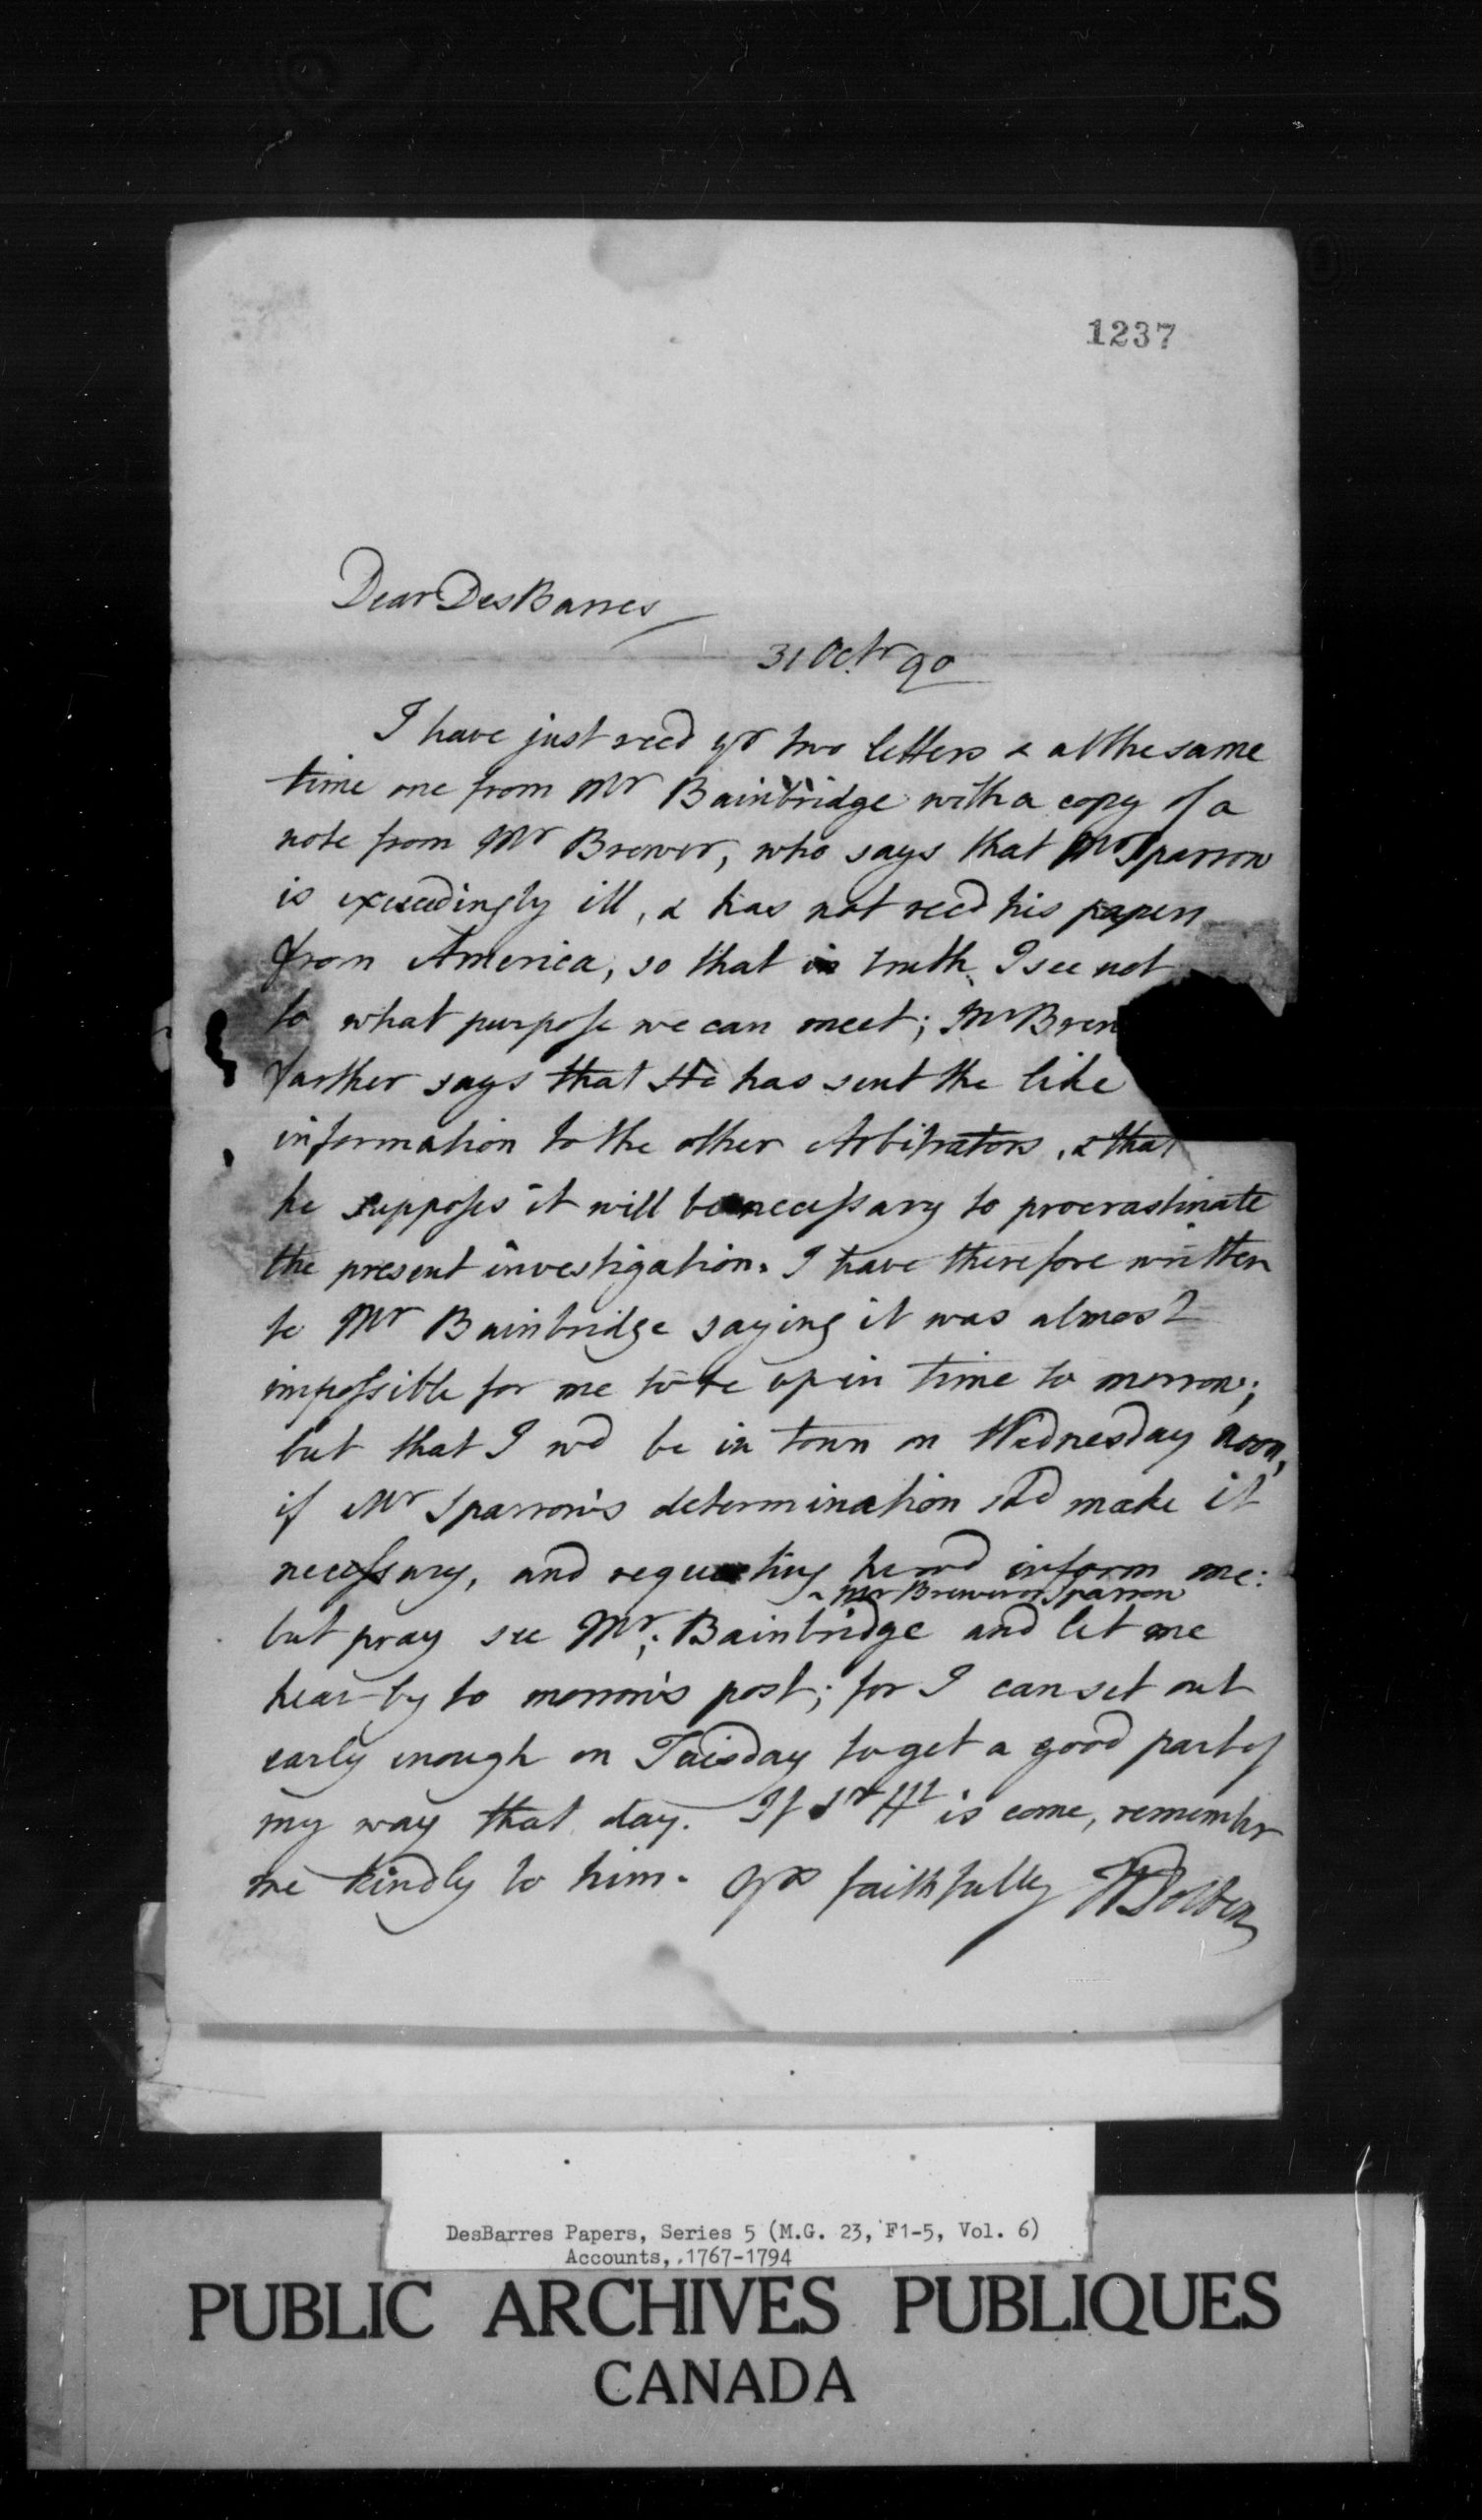 1237
Dear DesBarres
31 Octr 90
I have just recd yr two letters & at the same
time one from Mr Bainbridge with a copy of a
note from Mr Brewer, who says that Mr Sparrow
is exceedingly ill, & has not recd his papers
from America, so that in truth, I see not
to what purpose we can meet; Mr Brew
farther says that He has sent the like
information to the other Arbitrators, & that
he supposes it will be necessary to procrastinate
the present investigation. I have therefore written
to Mr Bainbridge saying it was almost
impossible for me to be up in time to morrow;
but that I wd be in town on Wednesday noon,
if Mr Sparrow's determination shd make it
necessary, and requesting he wd inform me:
Mr Brewer or Sparrow
but pray see Mr. Bainbridge and let me
hear by to morrow's post; for I can set out
early enough on Tuesday to get a good part of
my way that day. If Sr is come, remember
me kindly to him. Yrs faithfully W Dolben
DesBarres Papers, Series 5 (M.G. 23, F1-5, Vol. 6)
Accounts, 1767-1794
PUBLIC ARCHIVES PUBLIQUES
CANADA